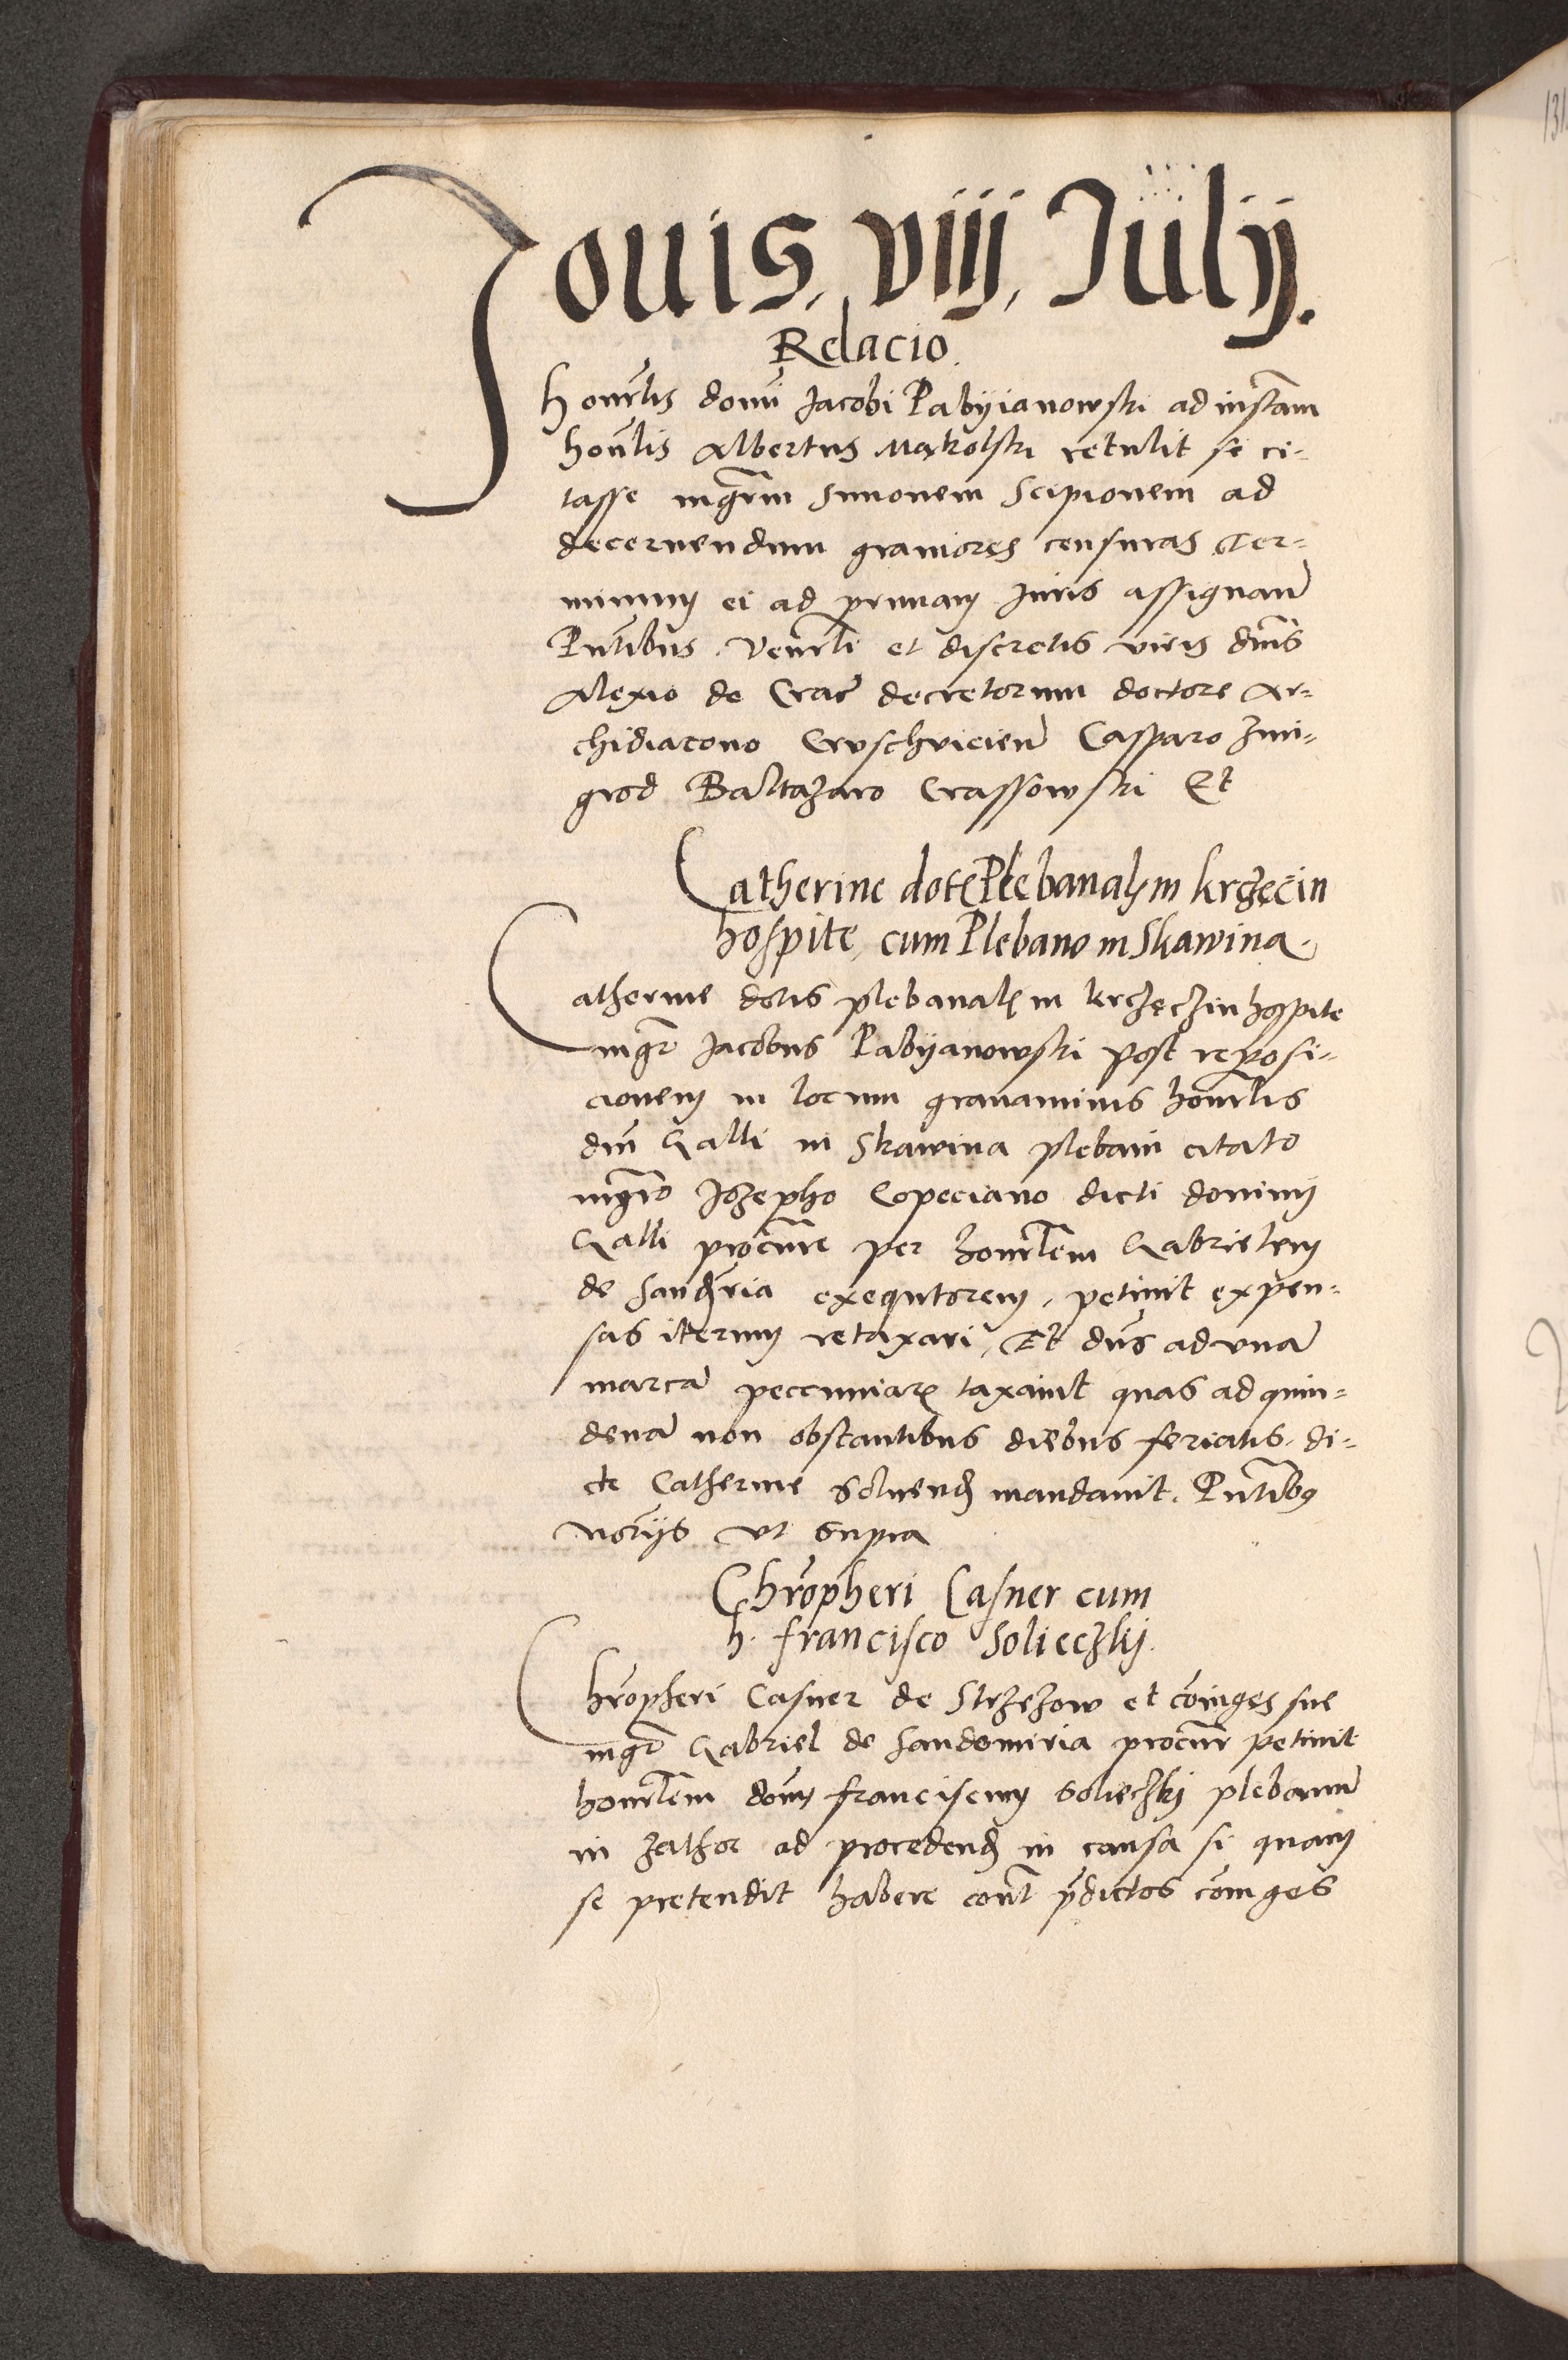 Jouis, viij, Julij.
Relacio.
honrlis domi Jacobi Pabyianowski ad instam
honlis Albertus Makolski retulit se ci-
tasse mgrm Simonem Scipionem ad
decernendum grauiores censuras Ter-
minum ei ad primam Juris assignan
Pntibus. Venrli et discretis viris dnis
Alexio de Crac decretorum doctore Ar-
chidiacono Cruschvicien Casparo Zmi-
grod Baltazaro Crassowski Et
Catherine dotis Plebanalis in krzęcin
hospite, cum Plebano in Skawina.
Catherine dotis plebanalis in krczęczin hospite
mgr Jacobus Pabyanowski post reposi-
cionem in locum grauaminis honrlis
dni Galli in Skawina plebani citato
mgro Jozepho Copeciano dicti domini
Galli procure per honrlem Gabrielem
de Sandria exequtorem, petiuit expen-
sas iterum retaxari, Et dns ad vna
marca pecuniar taxauit quas ad quin-
dena non obstantibus diebus feriatis di-
cte Catherine soluend mandauit. Pntibus
notrijs vt supra
Chropheri Casner cum
h. Francisco Solieczkij.
Chropheri Casner de Strzezow et coniuges sue
mgr Gabriel de Sandomiria procur petiuit
honrlem domi Franciscum Solieczkij plebanum
in Zathor ad procedend in causa si quam
se pretendit habere cont pdictos coniuges
131